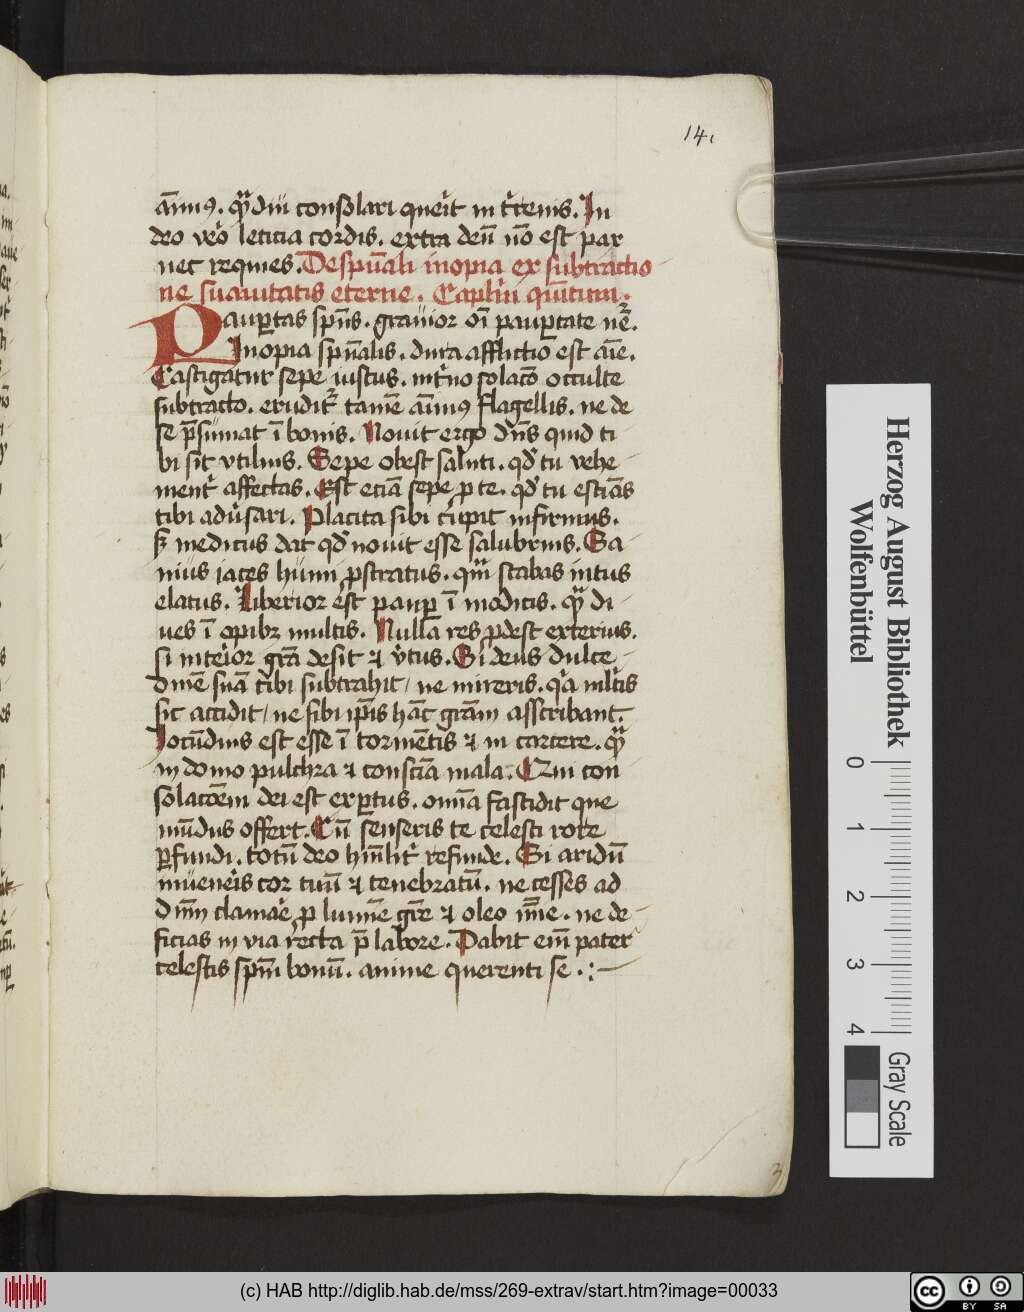 14.
āīmꝰ. qͣ̄diu consolari queͥit in t̾renis. In
deo veͦ leticia cordis. extra deū nō est pax
nec requies. De spūali inopia ex subtractio
ne suauitatis eterne. Caplm̄ quītum.
Pauꝑtas spūs. grauior oī pauꝑtate ē.
Inopia spūalis. dura afflictio est aīe.
Castigatur sepe iustus. int̾no solacō occulte
subtracto. erudit᷑ tamē āīmꝰ flagellis. ne de
se p̄sumat ī bonis. Nouit ergo dn̄s quid ti
bi sit vtilius. Sepe obest saluti. qd̾ tu vehe
ment̾ affectas. Est eciā sepe ꝓ te. qd̾ tu estiās
tibi adu̾sari. Placita sibi cupit infirmus.
sꝫ medicus dat qd̾ nouit esse salubrius. Sa
nius iaces humi ꝓstratus. qm̄ stabas intus
elatus. Liberior est paupꝑ ī modicis. qͣ̄ di
ues ī opibꝫ multis. Nulla res ꝓdest exterius.
si inteͥior grā desit ⁊ v̾tus. Si deus dulce
dinē suā tibi subtrahit / ne mireris. qͥa ml̾tis
sic accidit / ne sibi ip̄is hāc grām asscribant.
Jocūdius est esse ī tormētis ⁊ in carcere. qͣ̄
in domo pulchra ⁊ consciā mala. Qui con
solacōem dei est exꝑtus. omnia fastidit que
mūdus offert. Cū senseris te celesti rore
ꝑfundi. totū deo hūīlit̾ refunde. Si aridū
inueneͥis cor tuū ⁊ tenebratū. ne cesses ad
dīm̄ clamaͤe ꝓ lumīe gͬe ⁊ oleo m̄ie. ne de
ficias in via recta p̄ labore. Dabit eīm pater
celestis spm̄ bonū. anime querenti se .:~
3
Herzog August Bibliothek
Wolfenbüttel
0 1 2 3 4
Gray Scale
(c) HAB http://diglib.hab.de/mss/269-extrav/start.htm?image=00033
cc BY SA